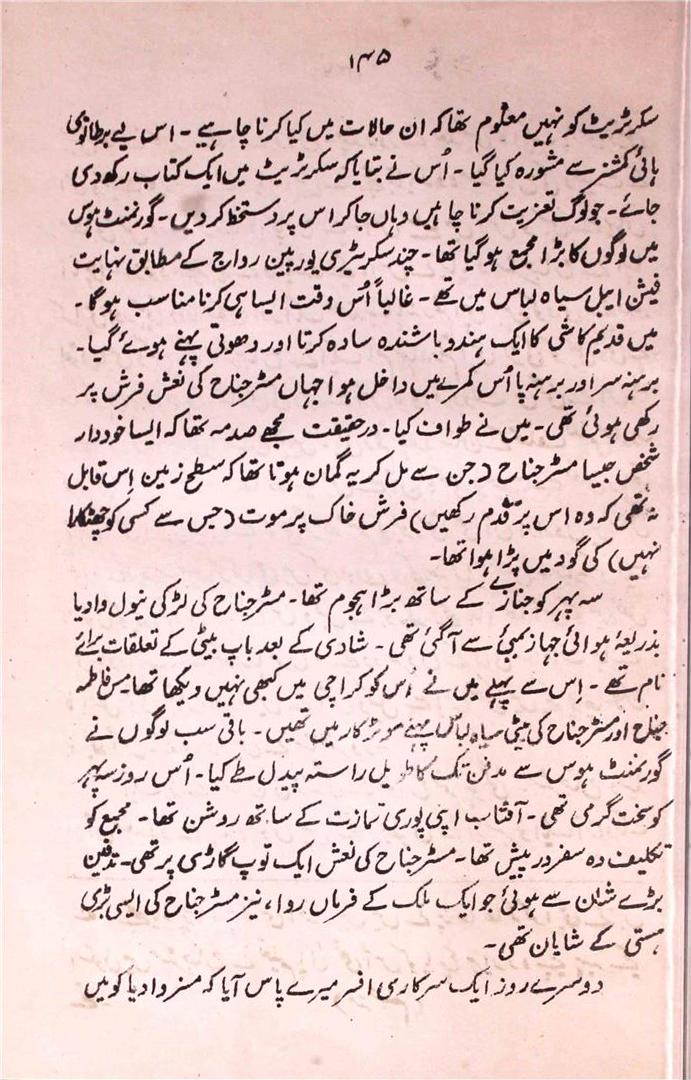 ۱۴۵
سکرٹریٹ کو نہیں معلوم تھا کہ ان حالات میں کیا کرنا چاہیے ۔ اس لیے برطانوی
ہائی کمشنر سے مشورہ کیا گیا ۔ اُس نے بتایا کہ سکرٹریٹ میں ایک کتاب رکھ دی
جائے ۔ جو لوگ تعزیت کرنا چاہیں وہاں جا کر اس پر دستخط کر دیں ۔ گورنمنٹ ہوس
میں لوگوں کا بڑا مجمع ہو گیا تھا ۔ چند سکریٹری یورپین رواج کے مطابق نہایت
فیشن ایبل سیاہ لباس میں تھے ۔ غالباً اُس وقت ایسا ہی کرنا مناسب ہوگا ۔
میں قدیم کاشی کا ایک ہندو باشندہ سادہ کرتا اور دھوتی پہنے ہوئے گیا ۔
برہنہ سر اور برہنہ پا اُس کمرے میں داخل ہوا جہاں مسٹر جناح کی نعش فرش پر
رکھی ہوئی تھی ۔ میں نے طواف کیا ۔ درحقیقت مجھے صدمہ تھا کہ ایسا خوددار
شخص جیسا مسٹر جناح (جن سے مل کر یہ گمان ہوتا تھا کہ سطح زمین اِس قابل
نہ تھی کہ وہ اس پر قدم رکھیں) فرش خاک پر موت (جس سے کسی کو چھٹکارا
نہیں) کی گود میں پڑا ہوا تھا ۔
سہ پہر کو جنازے کے ساتھ بڑا ہجوم تھا ۔ مسٹر جناح کی لڑکی نیول وادیا
بذریعۂ ہوائی جہاز بمبئی سے آ گئی تھی ۔ شادی کے بعد باپ بیٹی کے تعلقات برائے
نام تھے ۔ اِس سے پہلے میں نے اُس کو کراچی میں کبھی نہیں دیکھا تھا مس فاطمہ
جناح اور مسٹر جناح کی بیٹی سیاہ لباس پہنے موٹر کار میں تھیں ۔ باقی سب لوگوں نے
گورنمنٹ ہوس سے مدفن تک کا طویل راستہ پیدل طے کیا ۔ اُس روز سہ پہر
کو سخت گرمی تھی ۔ آفتاب اپنی پوری تمازت کے ساتھ روشن تھا ۔ مجمع کو
تکلیف دہ سفر درپیش تھا ۔ مسٹر جناح کی نعش ایک توپ گاڑی پر تھی ۔ تدفین
بڑے شان سے ہوئی جو ایک ملک کے فرماں روا، نیز مسٹر جناح کی ایسی بڑی
ہستی کے شایان تھی ۔
دوسرے روز ایک سرکاری افسر میرے پاس آیا کہ مسز وادیا کو میں